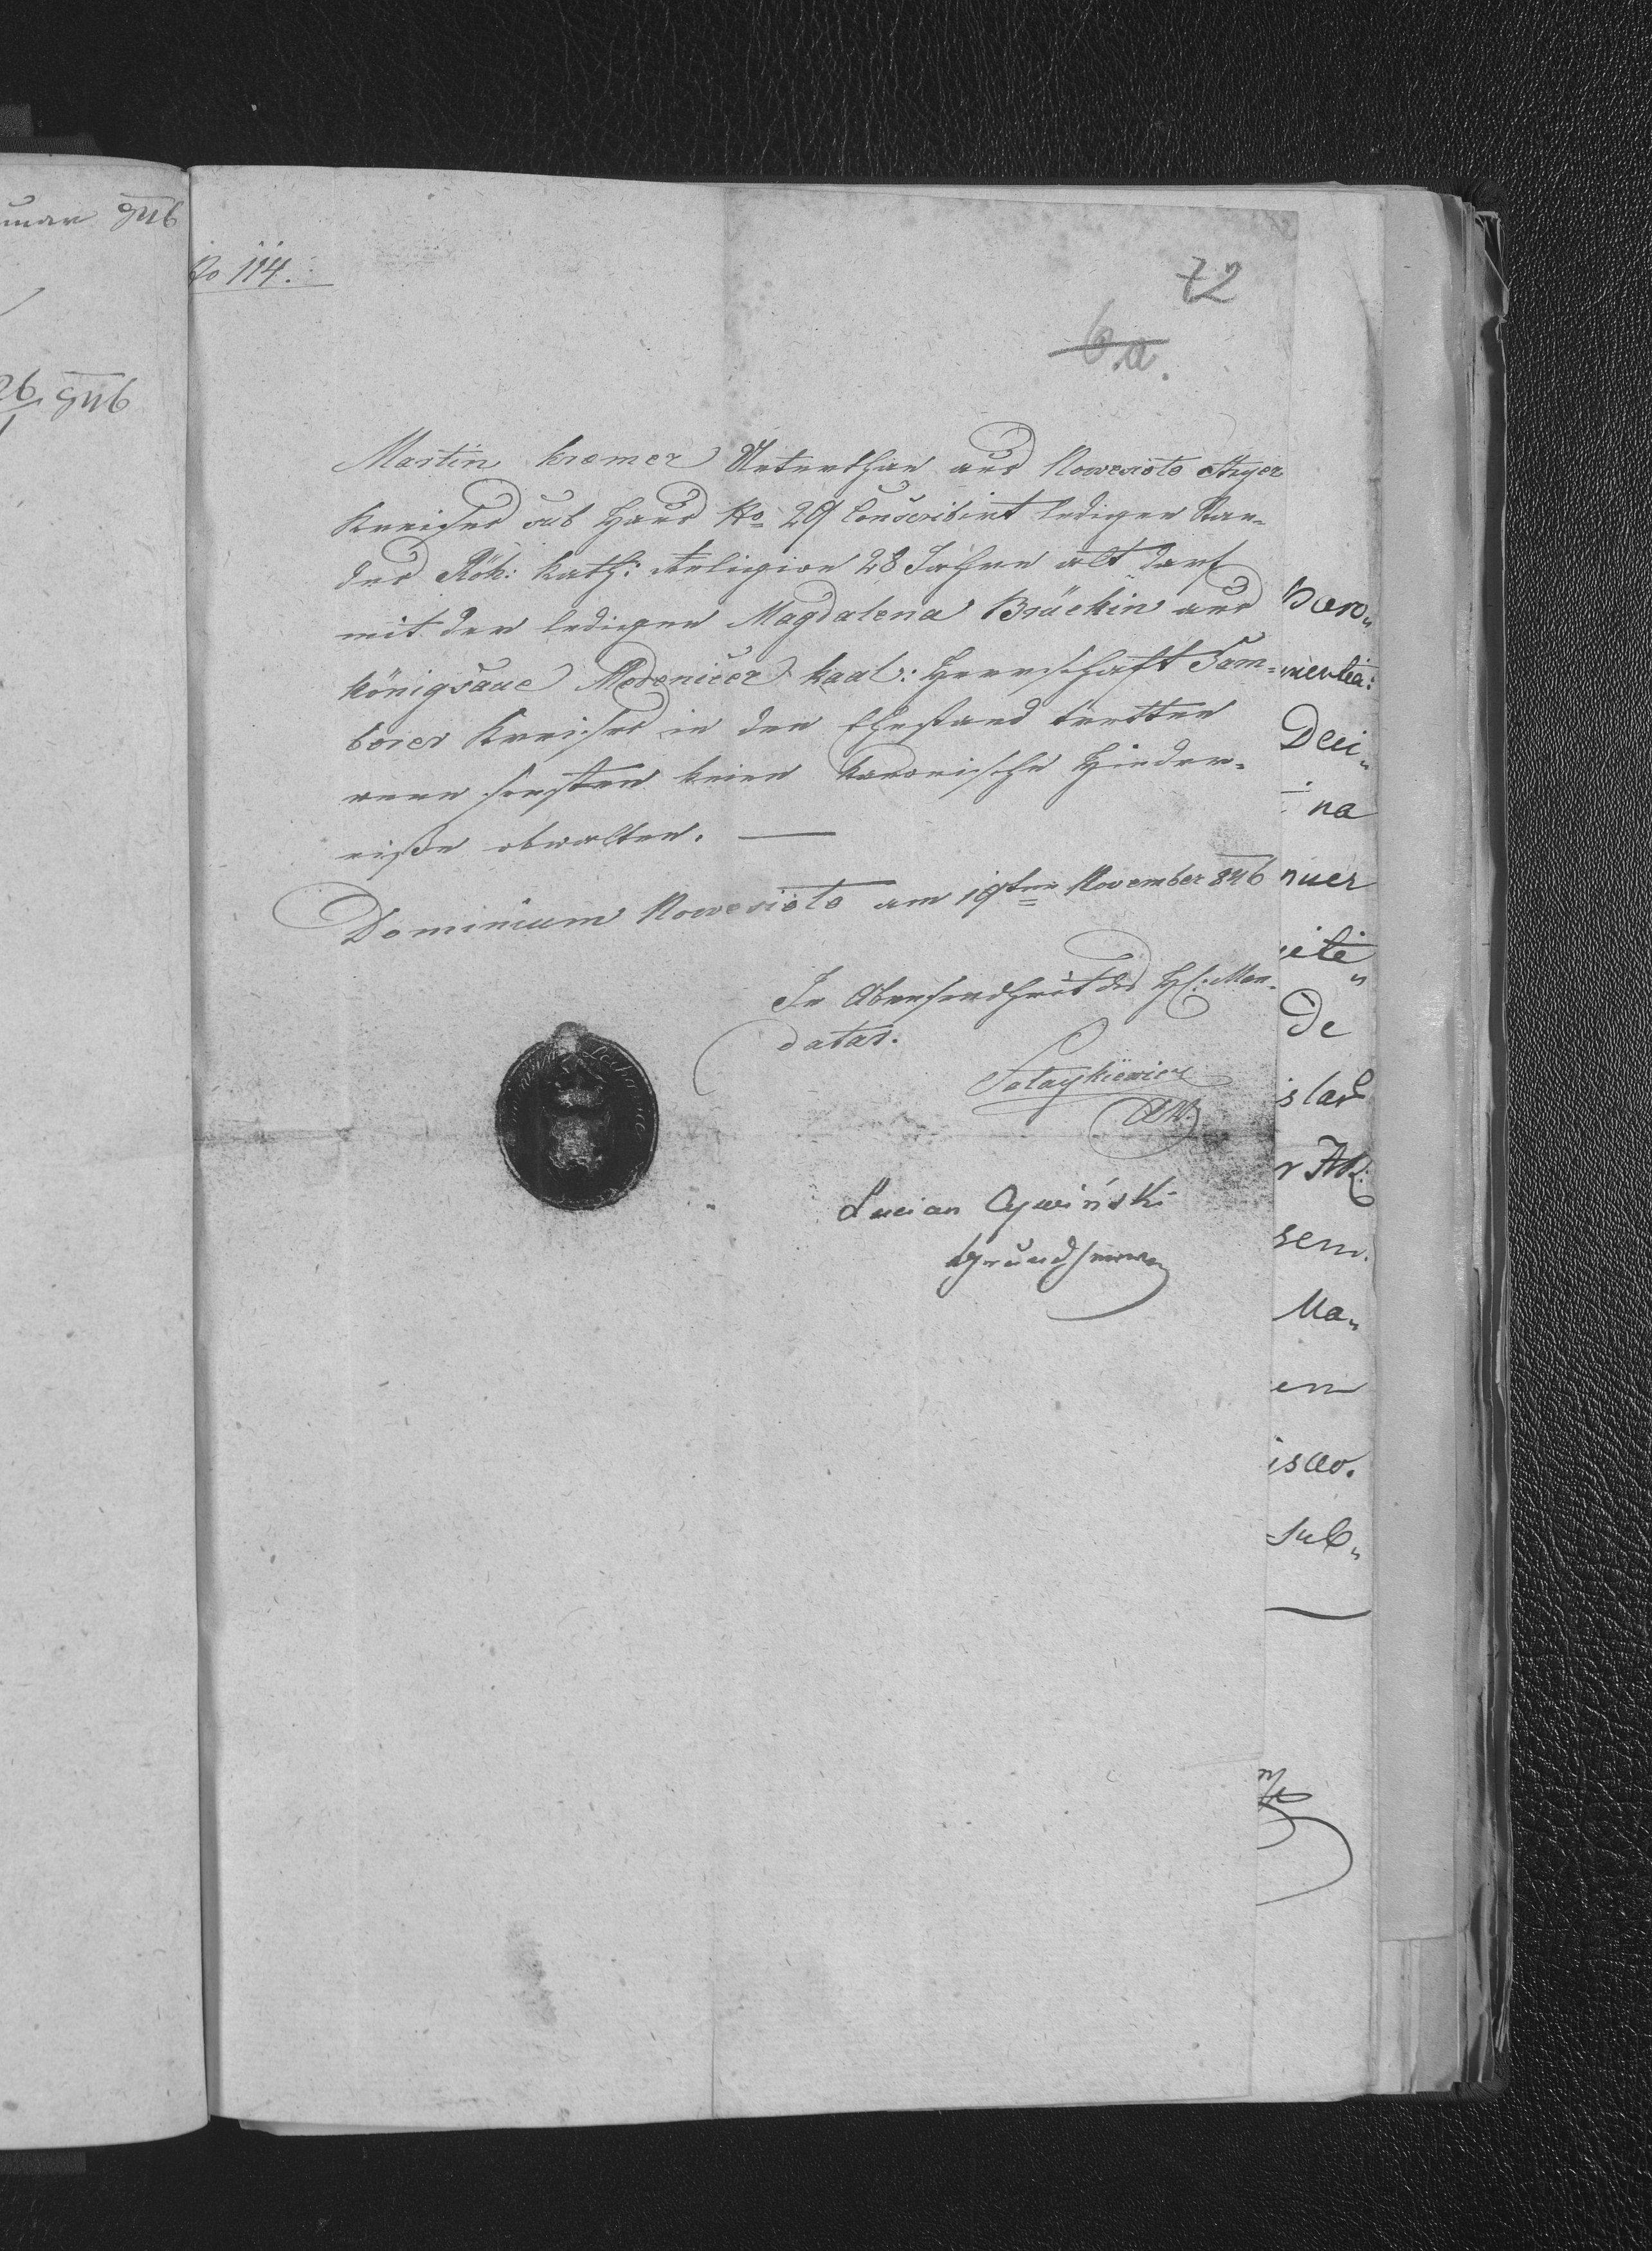 No 114.
72
6.a.
Martin Kremer Unterthan aus Nowesioło Stryer
Kreises sub Haus No 29 Conscribirt ledigen Stan-
des Röm: Kath: Religion 28 Jahre alt darf
mit der ledigen Magdalena Brückin aus
Königsaue Medenicer Kaal: Herrschaft Sam-
borer Kreises in den Ehestand tretten
wenn sonsten keine kanonische Hinder-
niße obwalten. —
Dominium Nowesioło am 19ten November 846
In Abwesendheit des H: Man-
datar.
Lucian Cywiński
Grundherr
Dei
na
nuer
De
sem.
Ma„
em
isao.
sub„